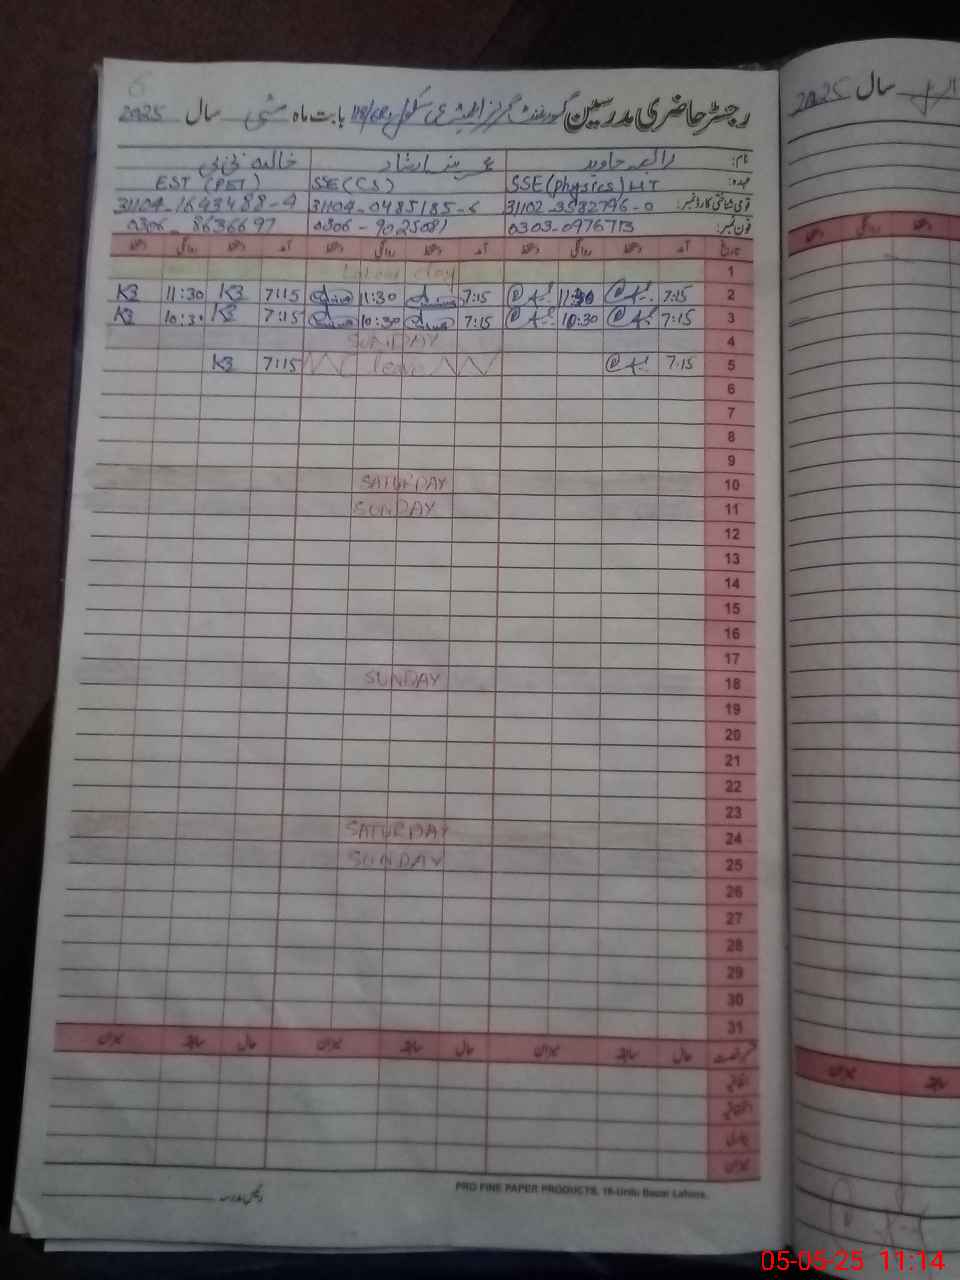 رجسٹر حاضری مدرسین گورنمنٹ گرلز ایلیمنٹری سکول بابت ماہ مئی سال 2025
نام: رابعہ جاوید خالدہ بی بی
عہدہ: SSE(physics) HT SSE(CS) EST (PET)
قومی شناختی کارڈ نمبر: 31102-3582796-0 31104-0485185-6 31104-1643488-4
فون نمبر: 0303-0976713 0306-9025081 0306-8636697
تاریخ آمد دستخط روانگی دستخط آمد دستخط روانگی دستخط آمد دستخط روانگی دستخط
1 Labour day
2 7:15 11:30 7:15 11:30 7:15 K3 11:30 K3
3 7:15 10:30 7:15 10:30 7:15 K3 10:30 K3
4 SUNDAY
5 7:15 leave 7:15 K3
6
7
8
9
10 SATURDAY
11 SUNDAY
12
13
14
15
16
17
18 SUNDAY
19
20
21
22
23
24 SATURDAY
25 SUNDAY
26
27
28
29
30
31
حال سابقہ میزان حال سابقہ میزان حال سابقہ میزان
میزان
PRO FINE PAPER PRODUCTS, 16-Urdu Bazar Lahore.
سال 2025
05-05-25 11:14